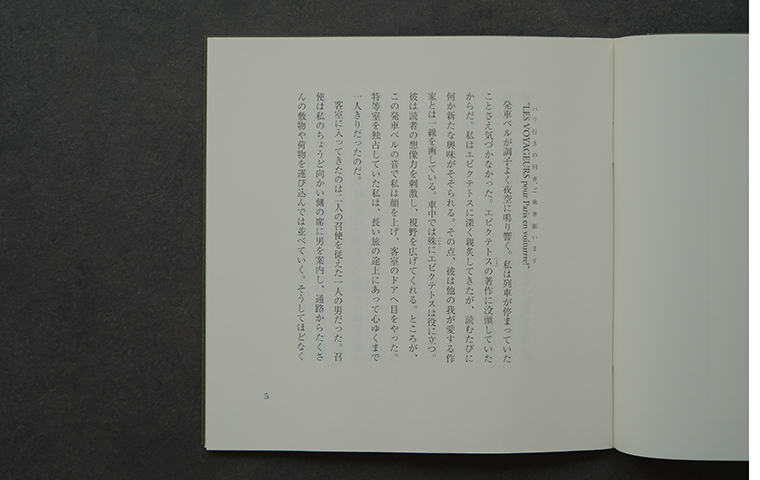 パリ行きの列車、ご乗車願います
"LES VOYAGEURS pour Paris en voiturrre!"
発車ベルが調子よく夜空に鳴り響く。私は列車が停まっていた
ことさえ気づかなかった。エピクテトスの著作に没頭していた
からだ。私はエピクテトスに深く親炙してきたが、読むたびに
何か新たな興味がそそられる。その点、彼は他の我が愛する作
家とは一線を画している。車中では殊にエピクテトスは役に立つ。
彼は読者の想像力を刺激し、視野を広げてくれる。ところが、
この発車ベルの音で私は顔を上げ、客室のドアへ目をやった。
特等室を独占していた私は、長い旅の途上にあって心ゆくまで
一人きりだったのだ。
客室に入ってきたのは二人の召使を従えた一人の男だった。召
使は私のちょうど向かい側の席に男を案内し、通路からたくさ
んの敷物や荷物を運び込んでは並べていく。そうしてほどなく
5